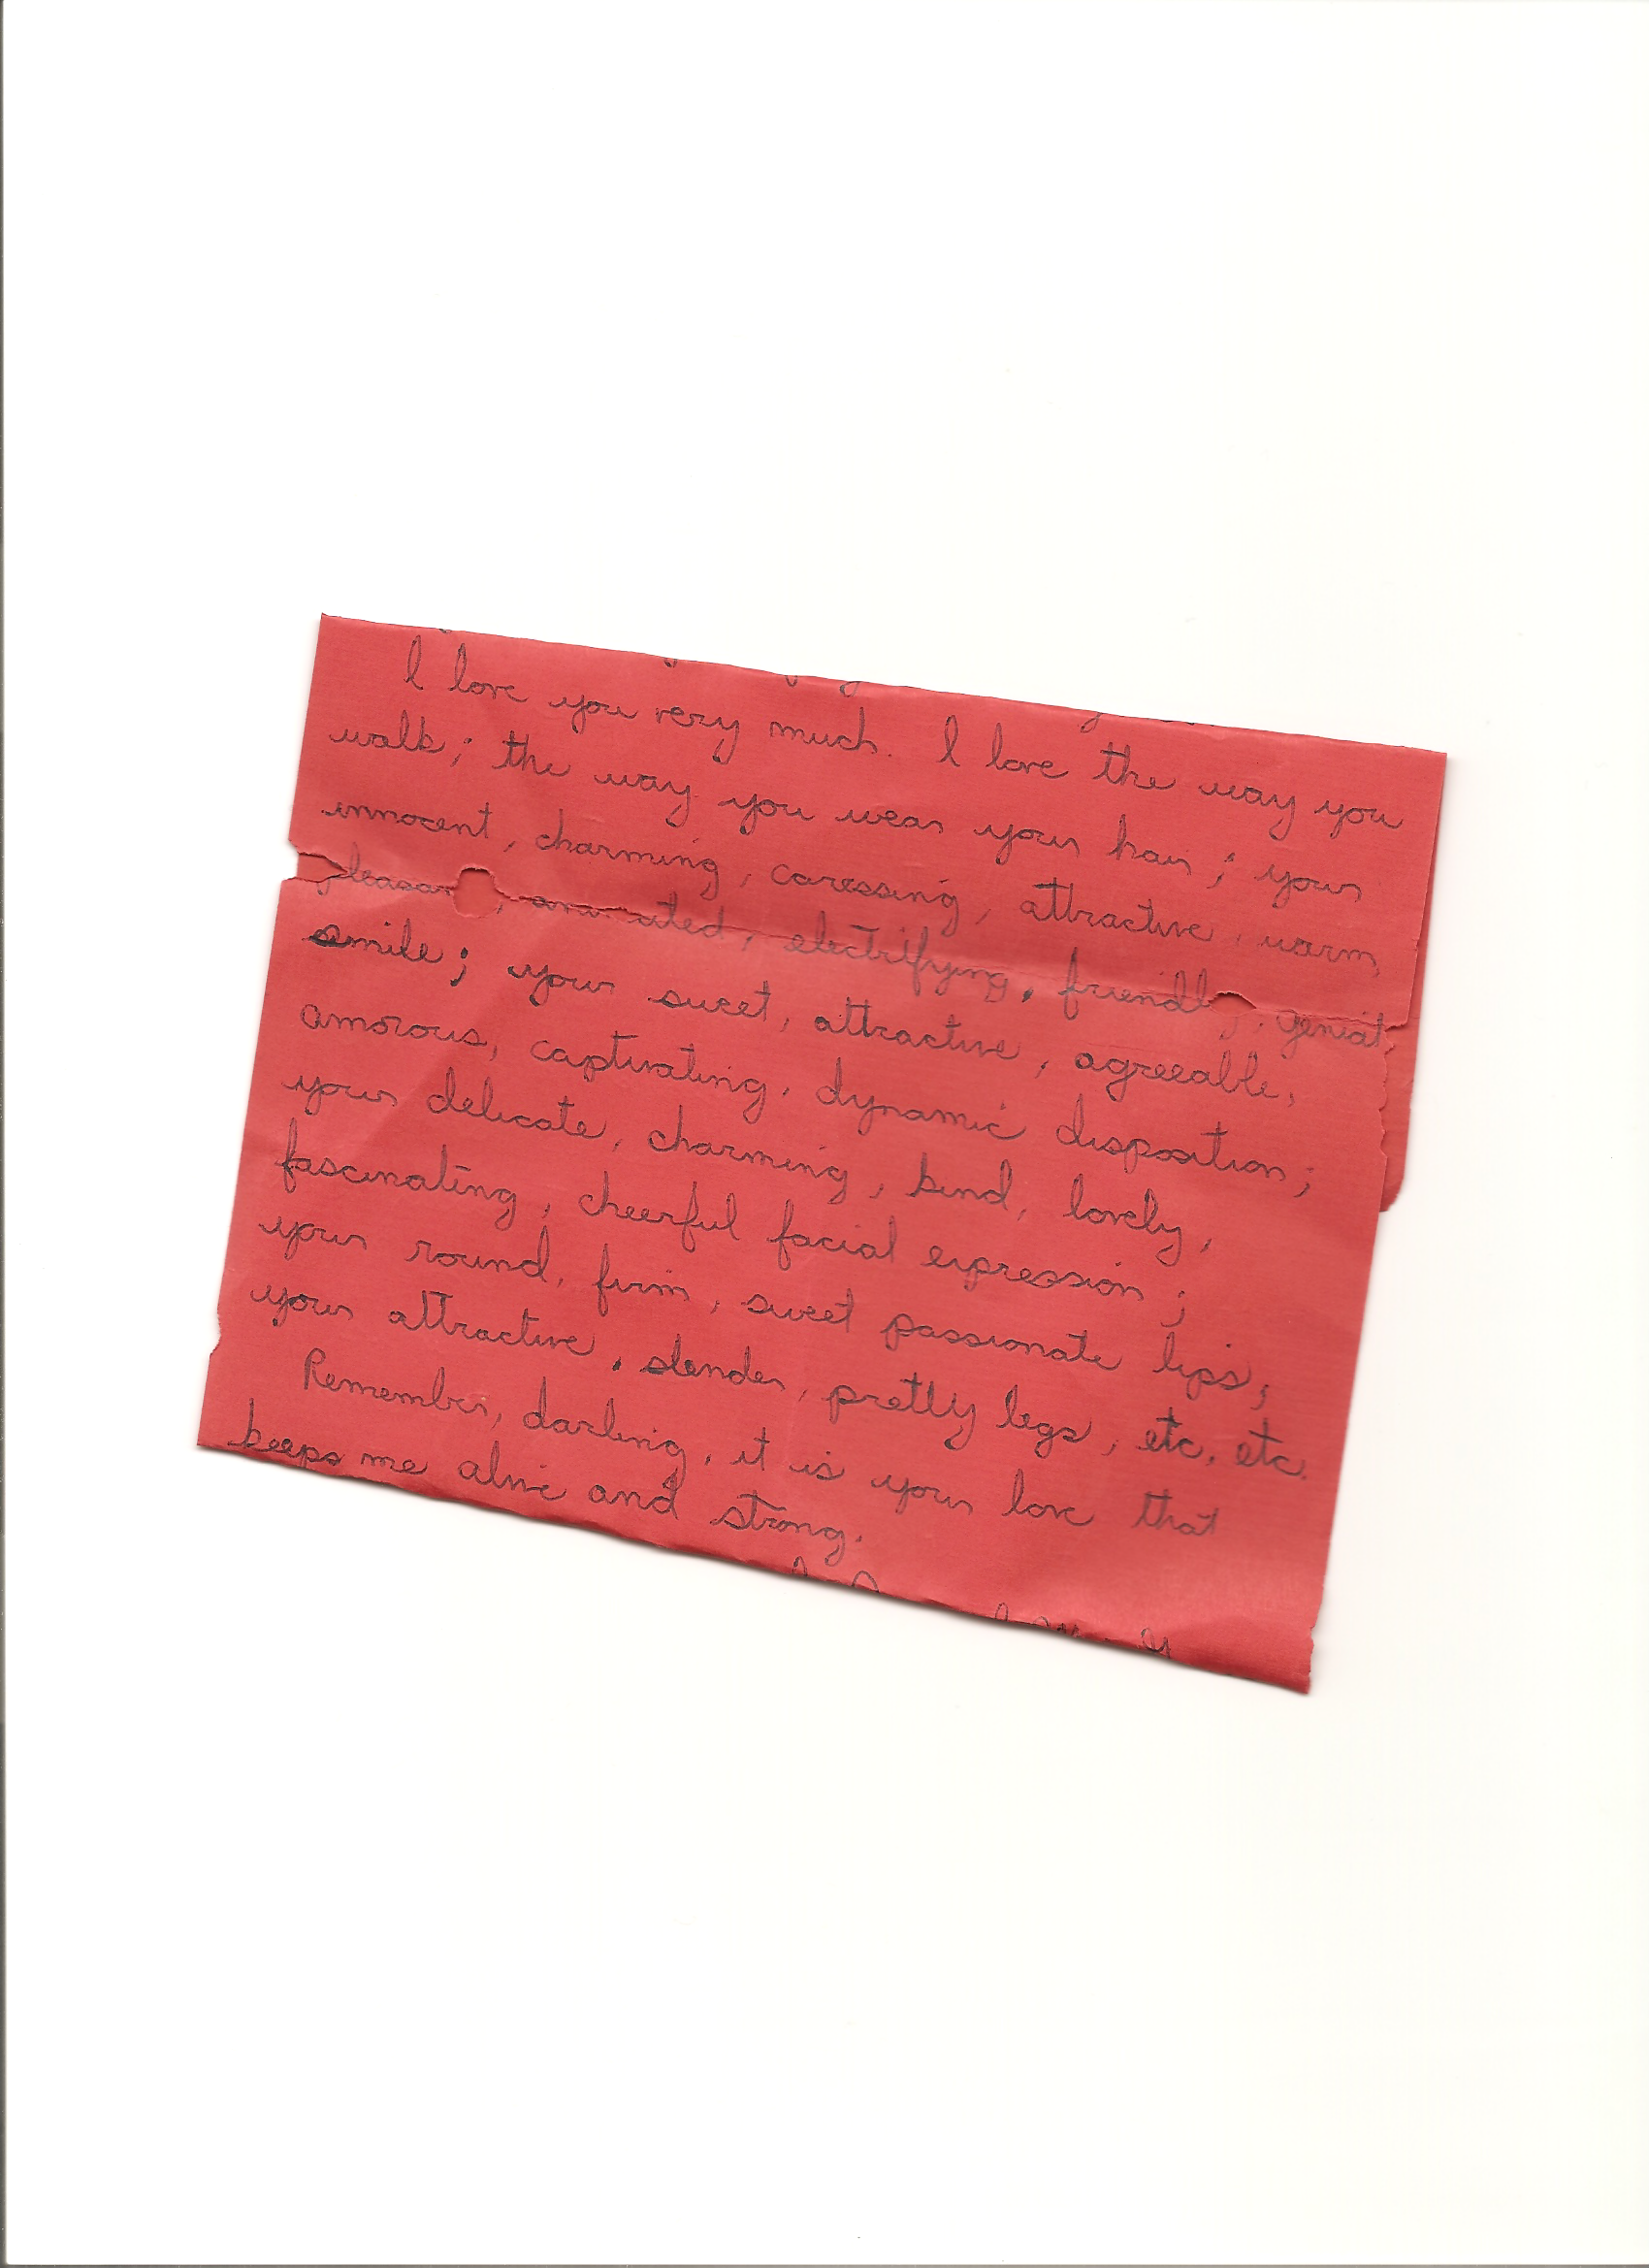 I love you very much. I love the way you
walk; the way you wear your hair; your
innocent, charming, caressing, attractive, warm,
pleasant, animated, electrifying, friendly, genial,
smile; your sweet, attractive, agreeable,
amorous, captivating, dynamic disposition;
your delicate, charming, kind, lovely,
fascinating, cheerful facial expression;
your round, firm, sweet passionate lips;
your attractive, slender, pretty legs, etc, etc.
Remember, darling, it is your love that
keeps me alive and strong.